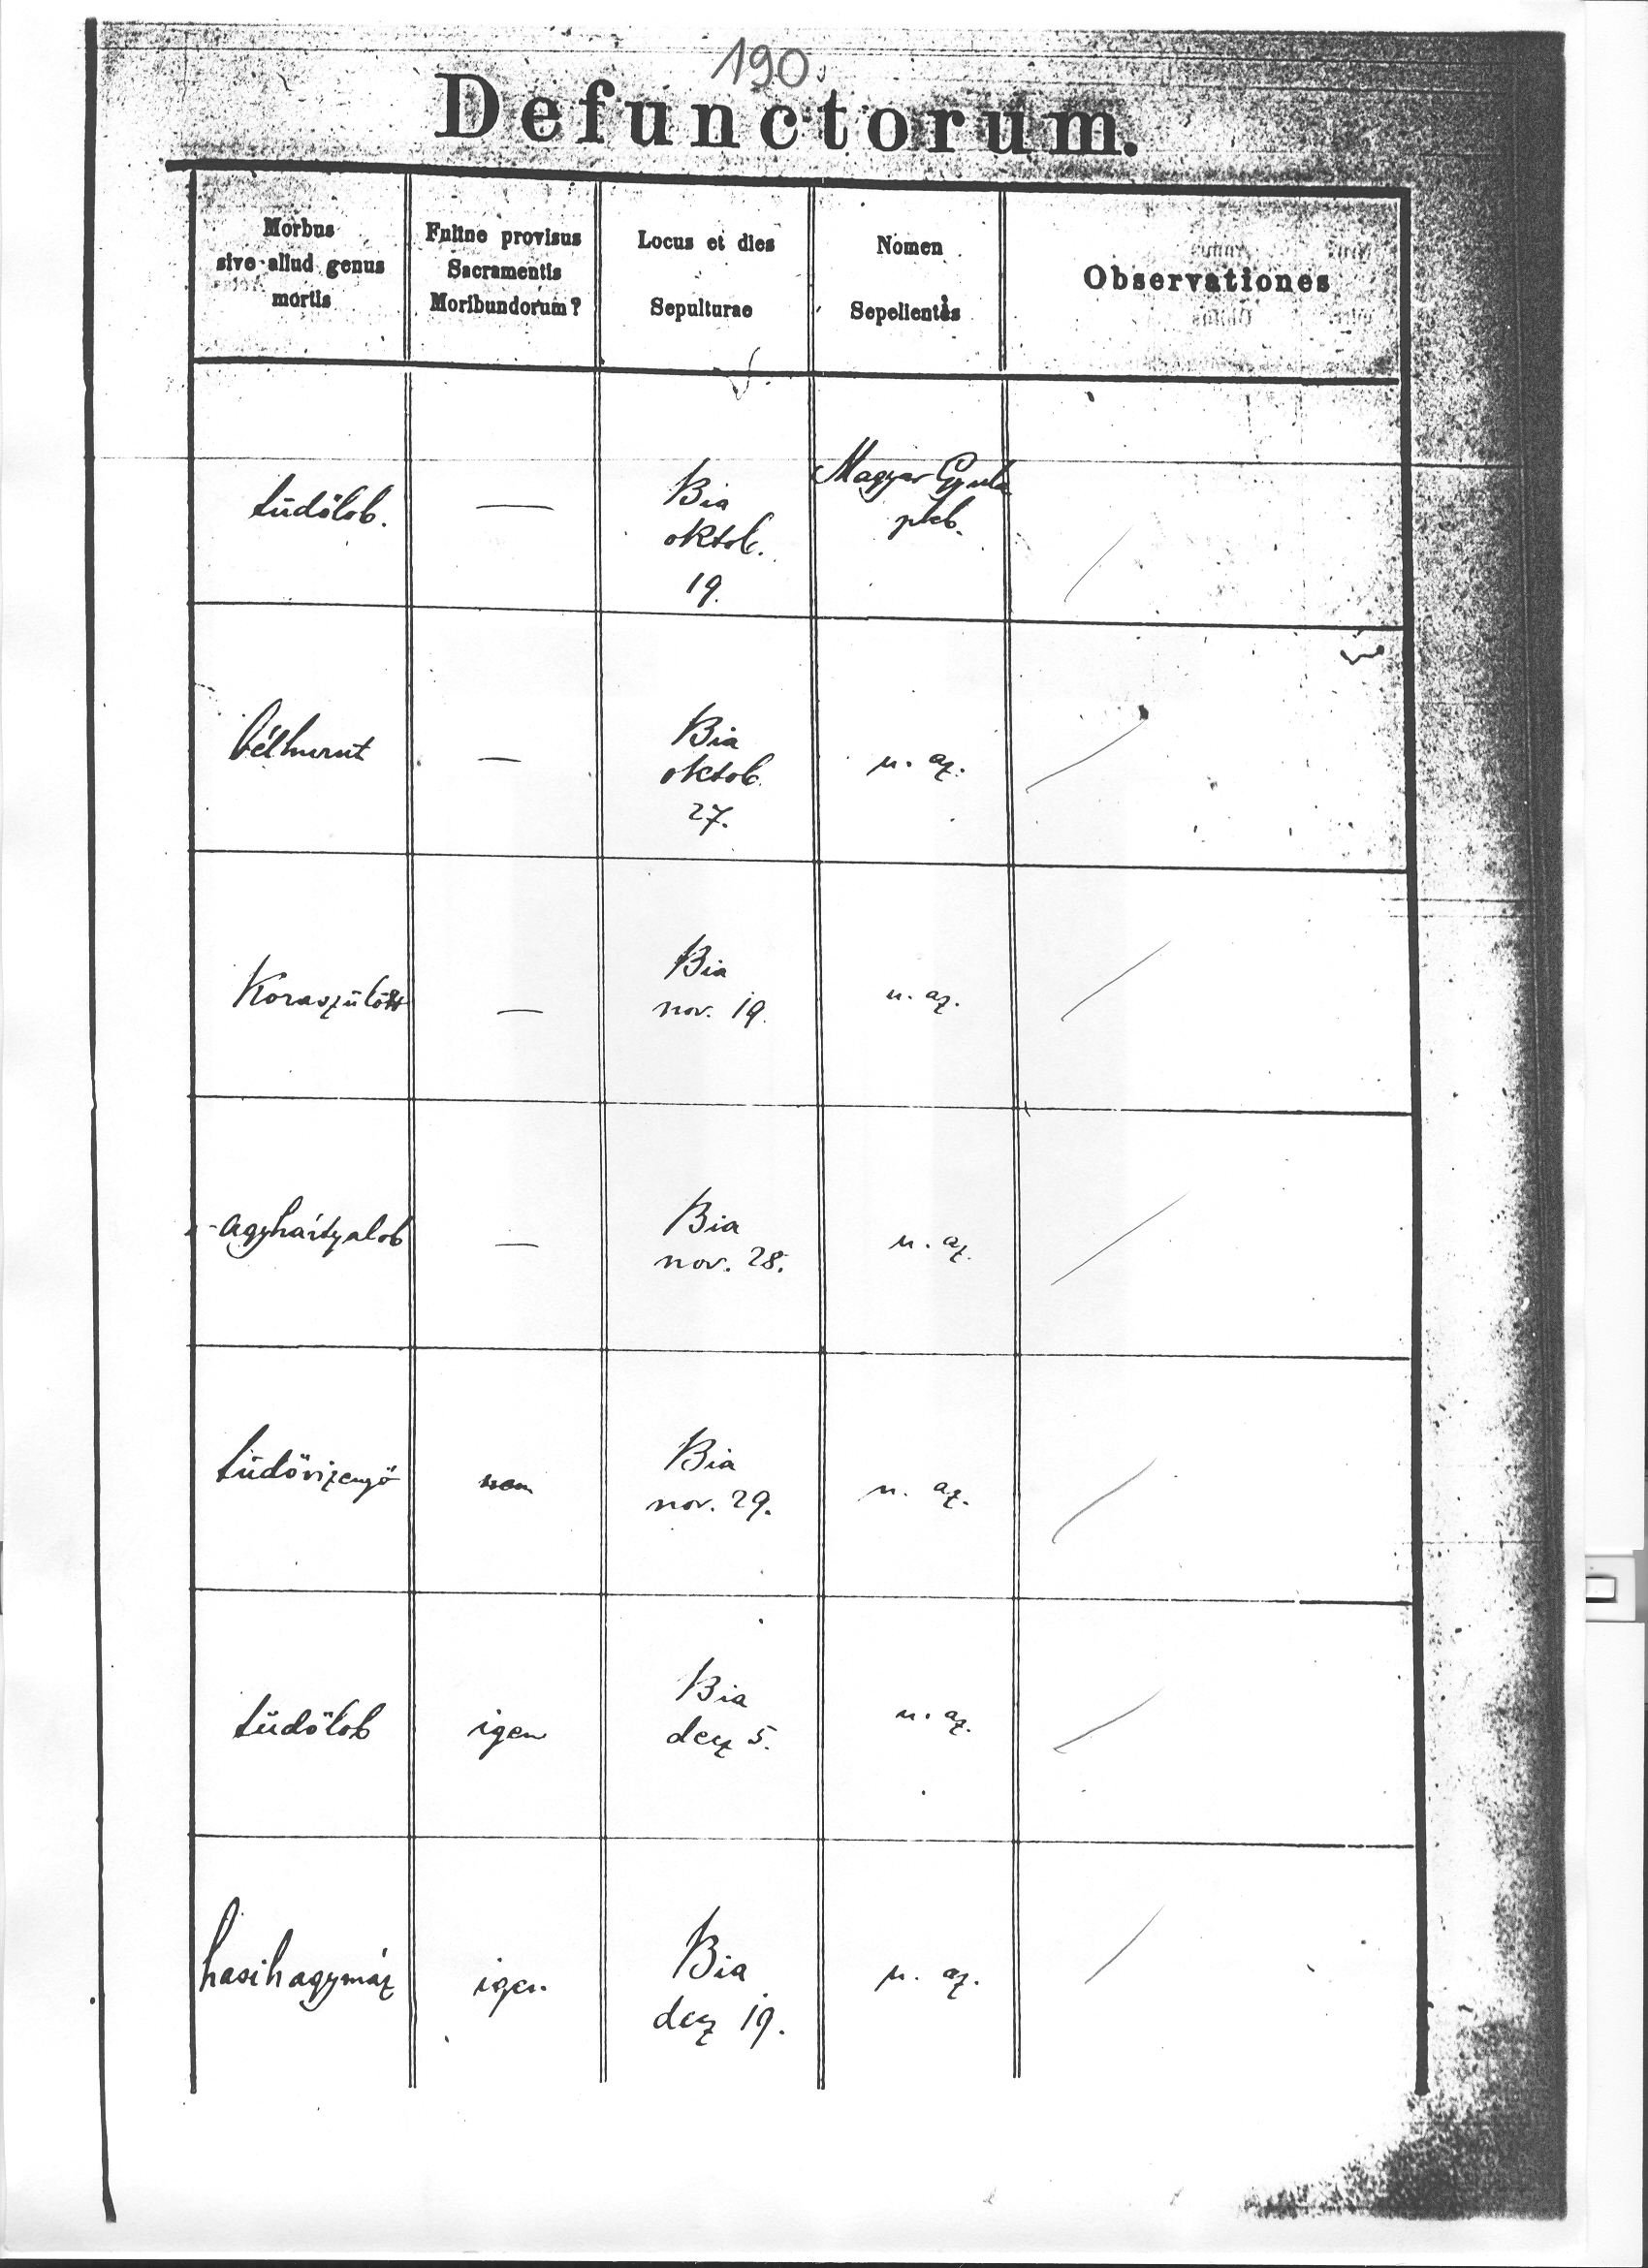 190
Defunctorum.
Morbus
sive aliud genus
mortis
Fuitne provisus
Sacramentis
Moribundorum?
Locus et dies
Sepulturae
Nomen
Sepelientis
Observationes
tüdőlob. — Bia
oktob.
19.
Magyar Gyula
pleb.
bélhurut — Bia
oktob.
27.
u. az.
Koraszülött — Bia
nov. 19.
u. az.
agyhártyalob — Bia
nov. 28.
u. az.
tüdővizenyő nem Bia
nov. 29.
u. az.
tüdőlob igen Bia
dez 5.
u. az.
hasihagymáz igen Bia
dez 19.
u. az.